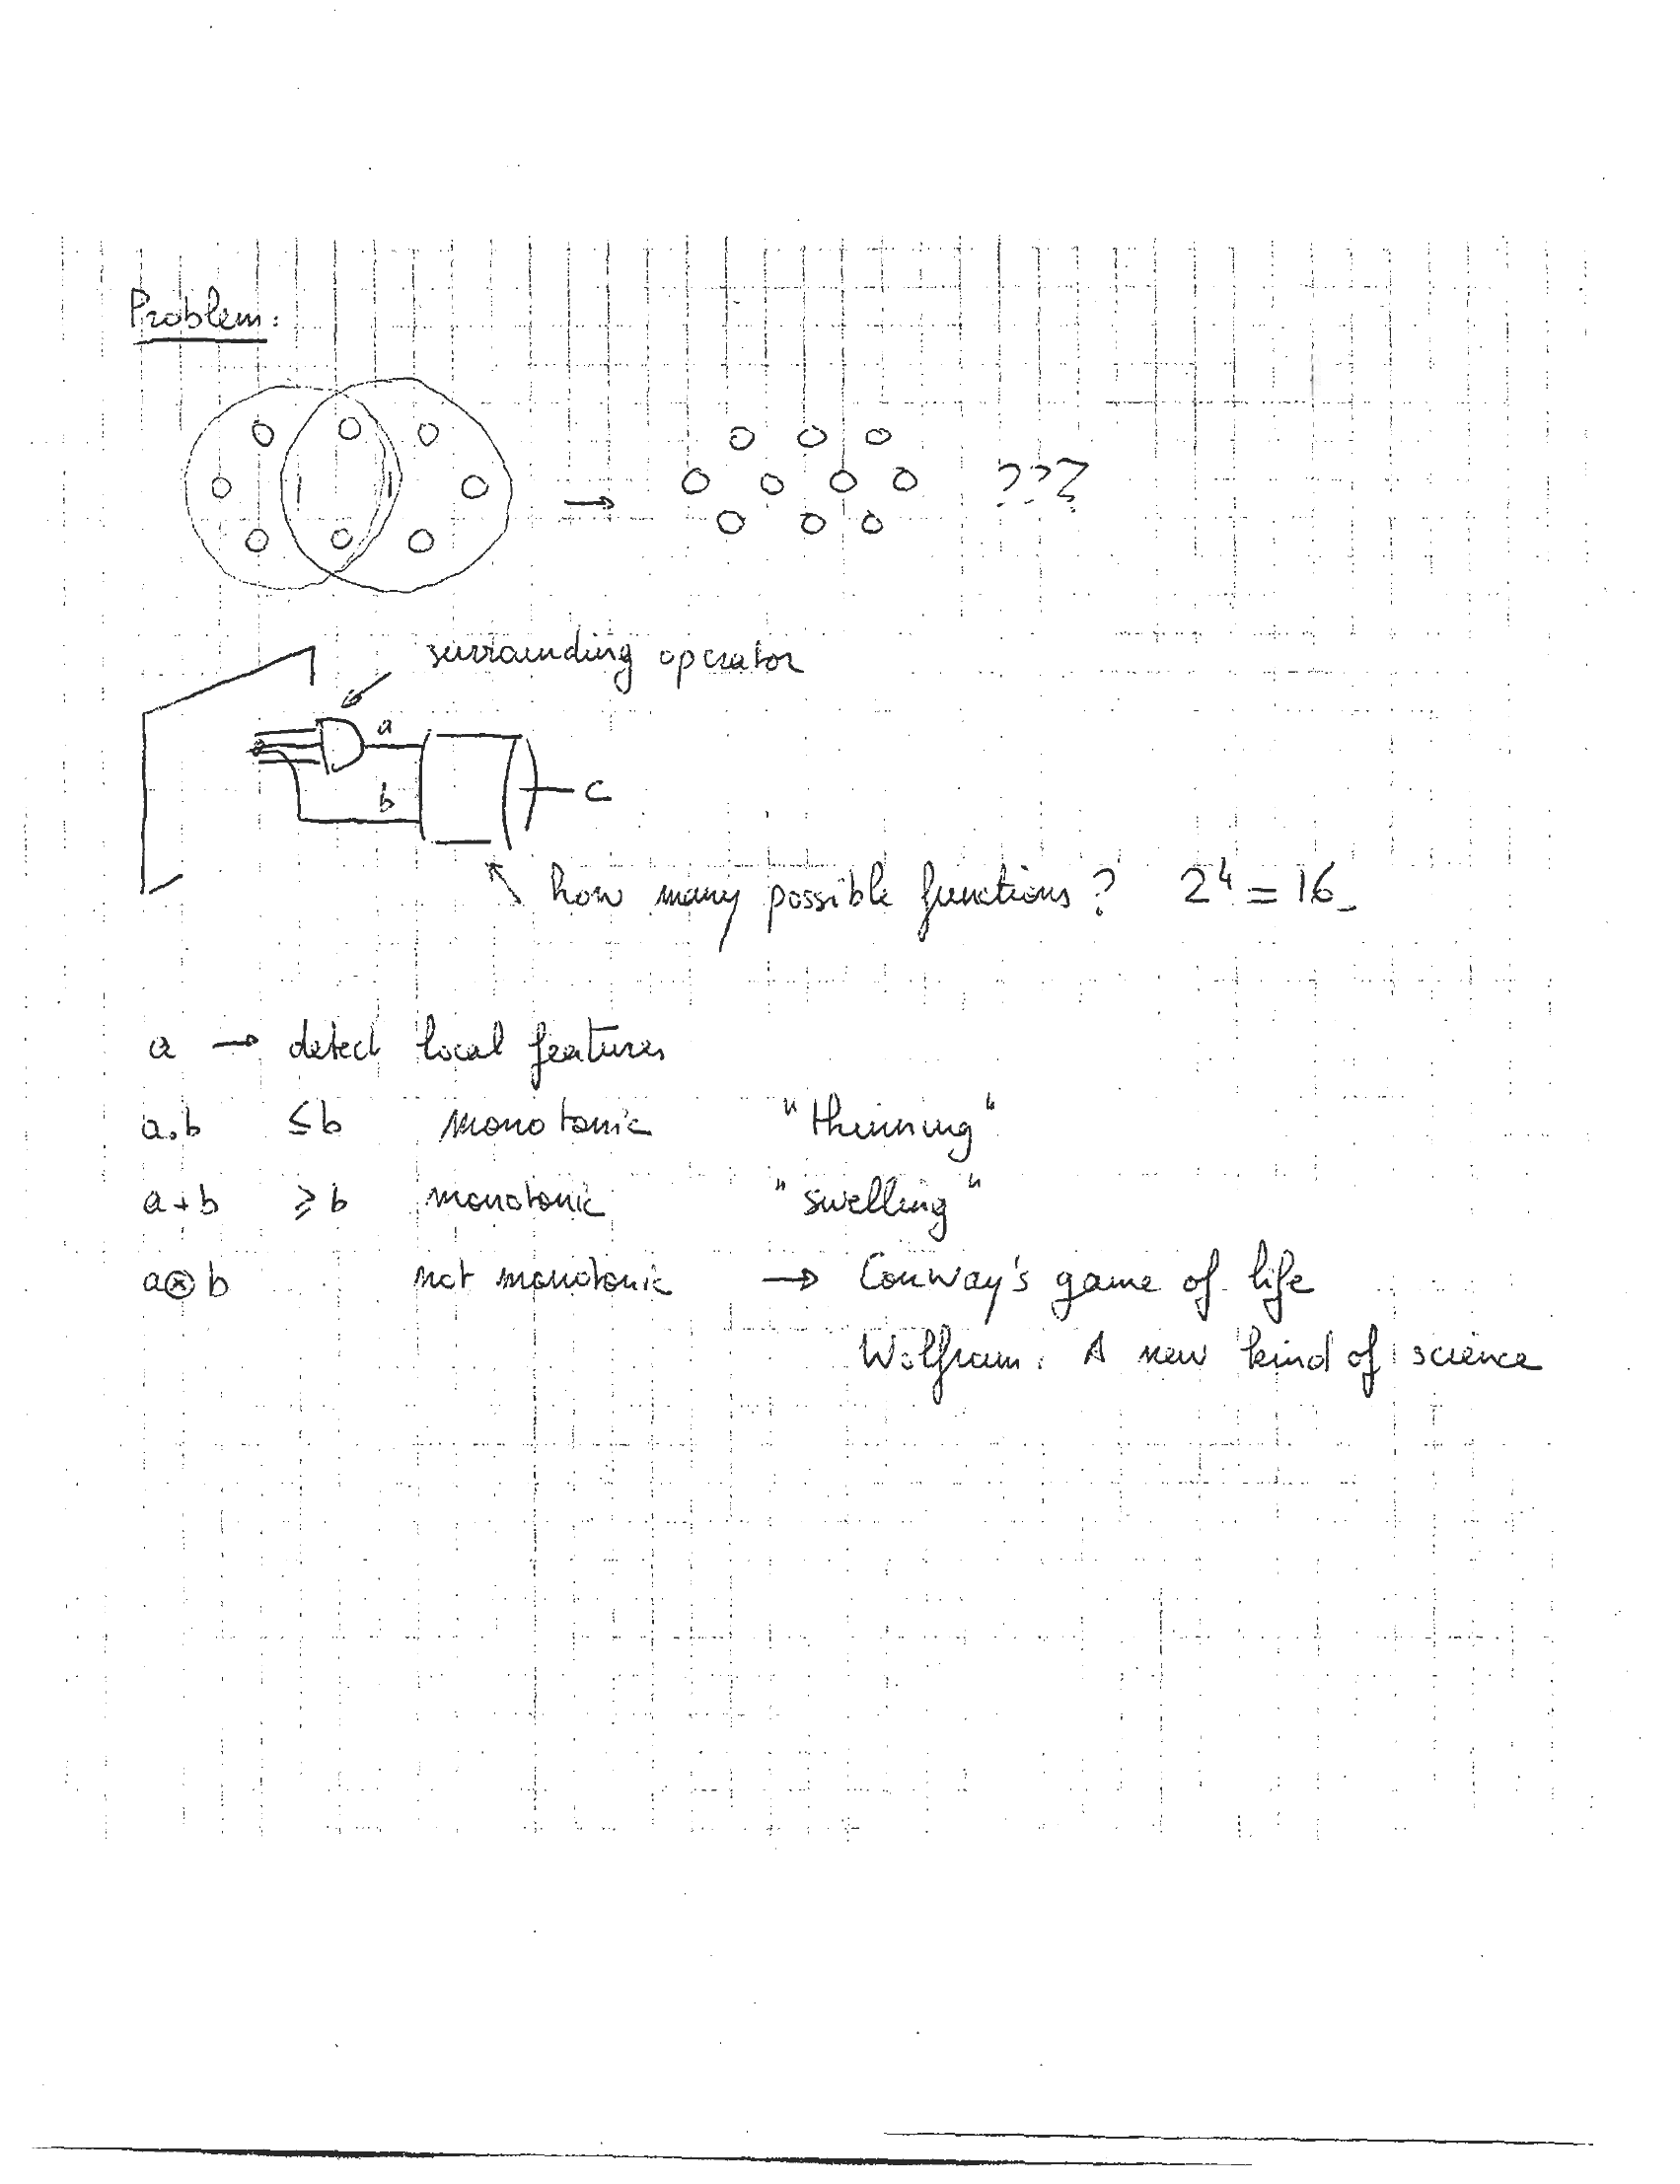 Problem:
???
surrounding operator
a
b
c
how many possible functions? 2⁴ = 16
a → detect local features
a.b ≤ b monotonic "thinning"
a+b ≥ b monotonic "swelling"
a⊗b not monotonic → Conway's game of life
Wolfram. A new kind of science